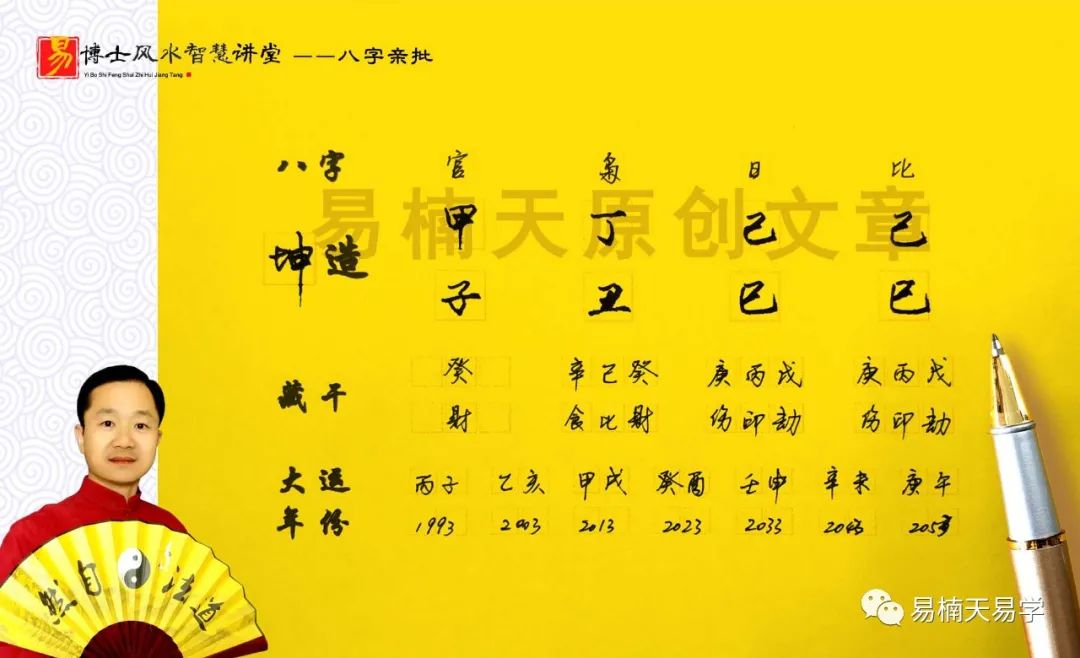 易 博士风水智慧讲堂 ——八字亲批
Yi Bo Shi Feng Shui Zhi Hui Jiang Tang
八字 官 枭 日 比
易楠天原创文章
坤造 甲 丁 己 己
子 丑 巳 巳
藏干 癸 辛己癸 庚丙戊 庚丙戊
财 食比财 伤印劫 伤印劫
大运 丙子 乙亥 甲戌 癸酉 壬申 辛未 庚午
年份 1993 2003 2013 2023 2033 2043 2053
然自法道
易楠天易学